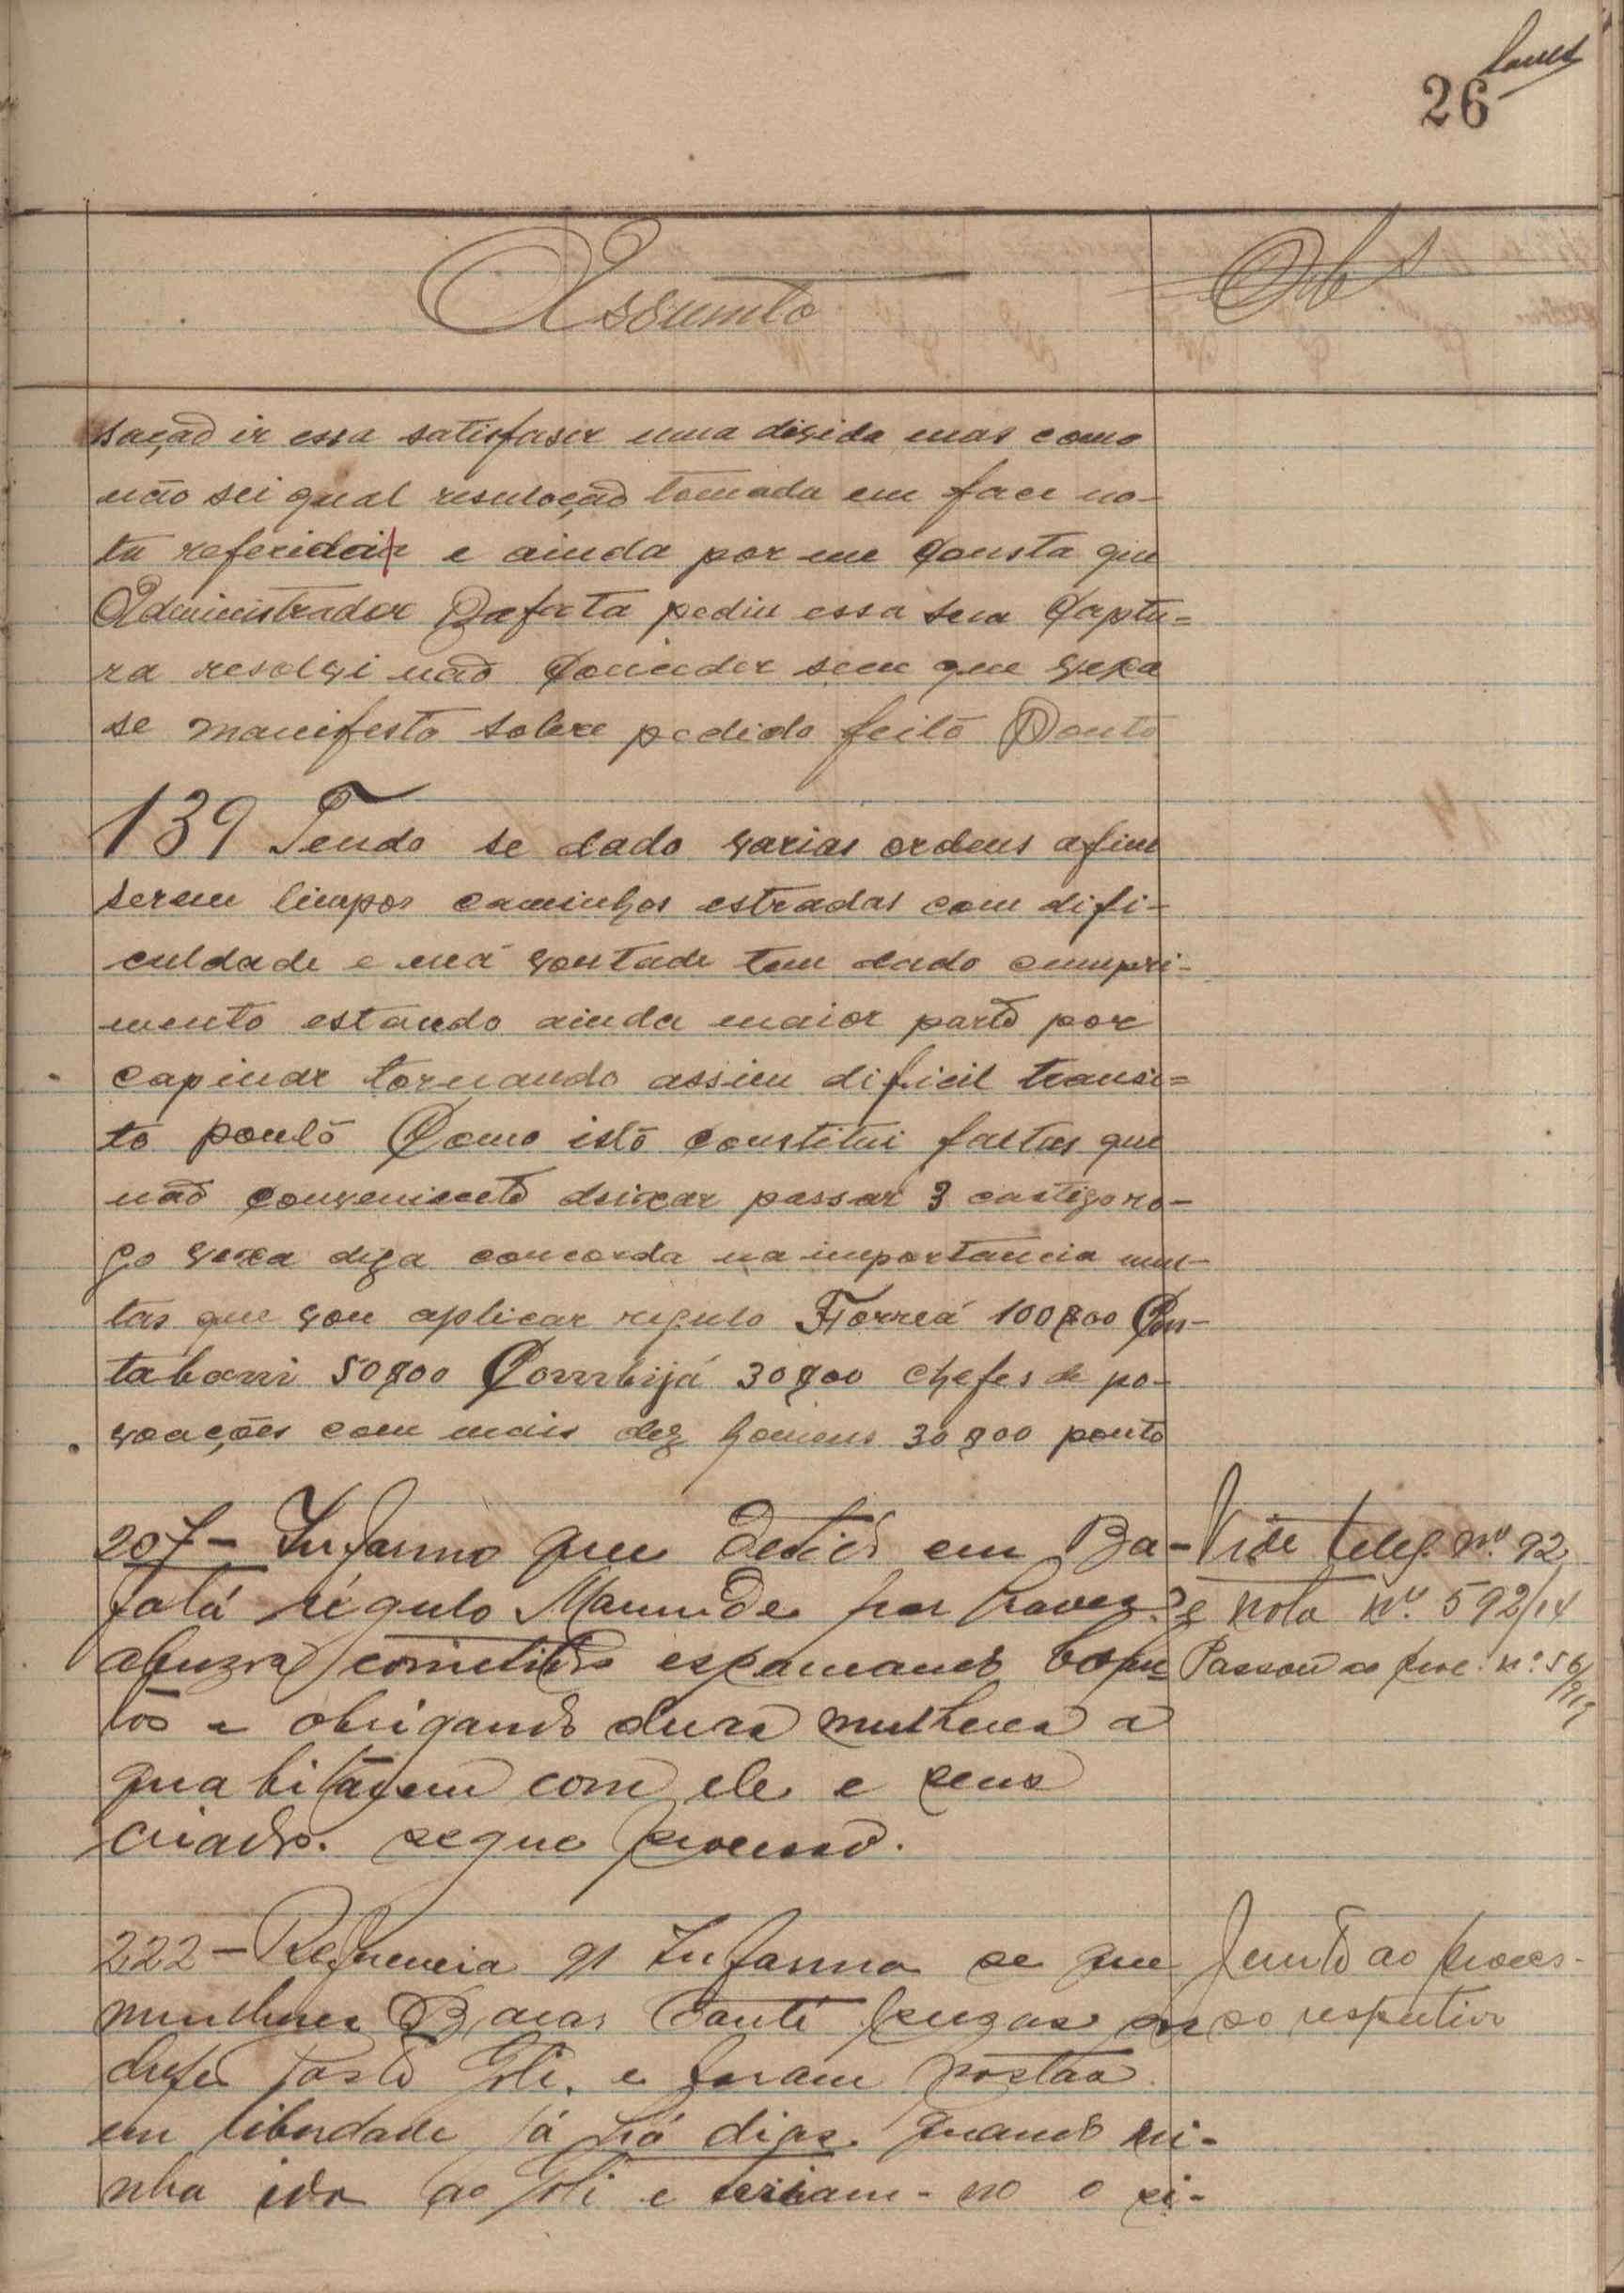 26
Assunto
Obs
sação ir essa satisfaser uma divida mas como
não sei qual resuloção tomada em face no-
ta referida e ainda por me consta que
Administrador Bafata pediu essa sua Captu-
ra resolvi não Conceder sem que vexa
se manifesto sobre pedido feito Ponto
139 Tendo se dado varias ordens afim
serem limpos caminhos estradas com difi-
culdade e má vontade tem dado cumpri-
mento estando ainda maior parte por
capinar tornando assim dificil transi=
to ponto Como isto constitui faltas que
não conveniente deixar passar s castigo ro-
go vexa diga concorda na importancia mul-
tas que vou aplicar regulo Forreá 100$00 Con-
tabani 50$00 Corrubijá 30$00 chefes de po-
voações com mais dez homens 30$00 ponto
207 - Informo que detido em Ba-
fatá régulo Mamude por graves
abuzos cometidos espancando
tos e obrigando duas mulheres a
quabitarem com ele e seus
criados. segue processo.
Vide teleg. nº 92
e nota nº 592/14
Passou ao proc. nº 56/915
222 - Referencia 91 Informo se que
mulheres
chefe Posto Goli. e foram postas
em liberdade já há dias quando vi-
nha ido ao Goli e
Junto ao proces-
so respectivo